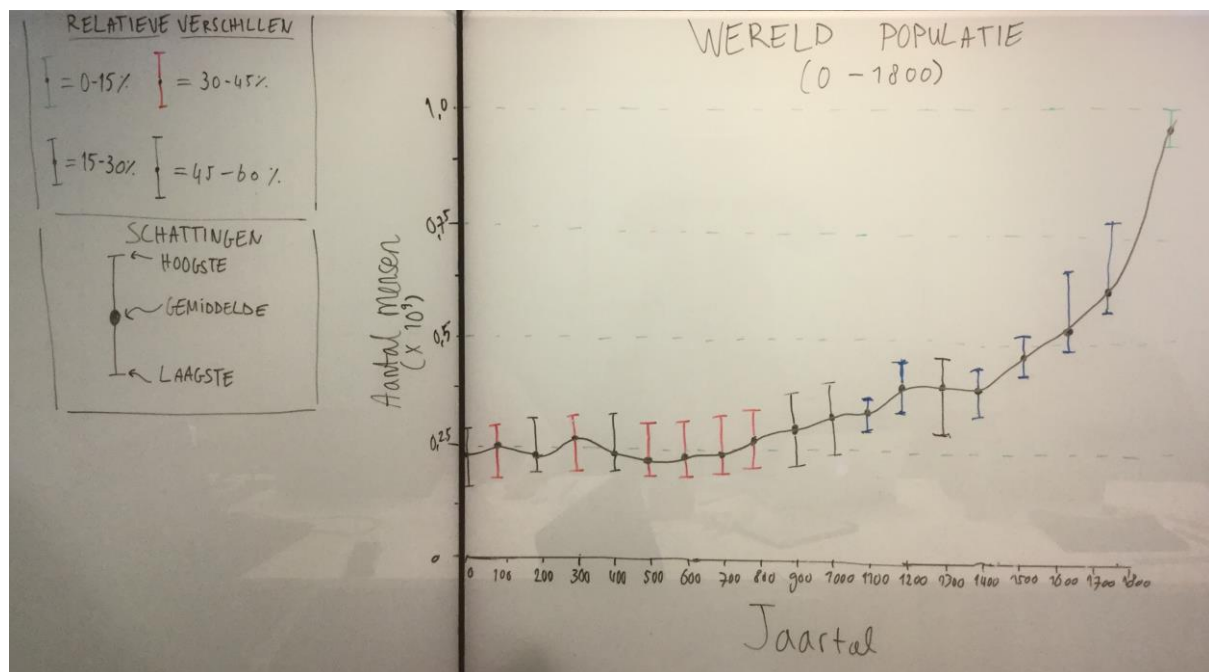 RELATIEVE VERSCHILLEN
= 0-15%
= 30-45%
= 15-30%
= 45-60%
SCHATTINGEN
HOOGSTE
GEMIDDELDE
LAAGSTE
WERELD POPULATIE
(0 - 1800)
Aantal mensen
(x 10⁹)
1,0
0,75
0,5
0,25
0
0 100 200 300 400 500 600 700 800 900 1000 1100 1200 1300 1400 1500 1600 1700 1800
Jaartal